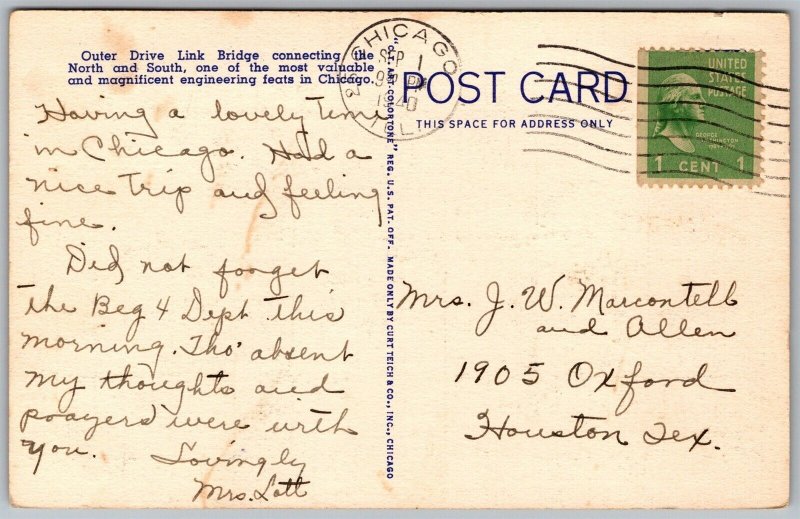 Outer Drive Link Bridge connecting the
North and South, one of the most valuable
and magnificent engineering feats in Chicago.
Having a lovely time
in Chicago. Had a
nice trip and feeling
fine.
Did not forget
the Beg 4 Dept this
morning. Tho' absent
my thoughts and
prayers were with
you.
Lovingly
Mrs. Lott
"C.T. ART-COLORTONE" REG. U.S. PAT. OFF. MADE ONLY BY CURT TEICH & CO., INC., CHICAGO
CHICAGO
SEP 1
9 PM
1940
ILL
POST CARD
THIS SPACE FOR ADDRESS ONLY
UNITED
STATES
POSTAGE
GEORGE
WASHINGTON
1 CENT 1
Mrs. J. W. Marcontell
and Allen
1905 Oxford
Houston Tex.